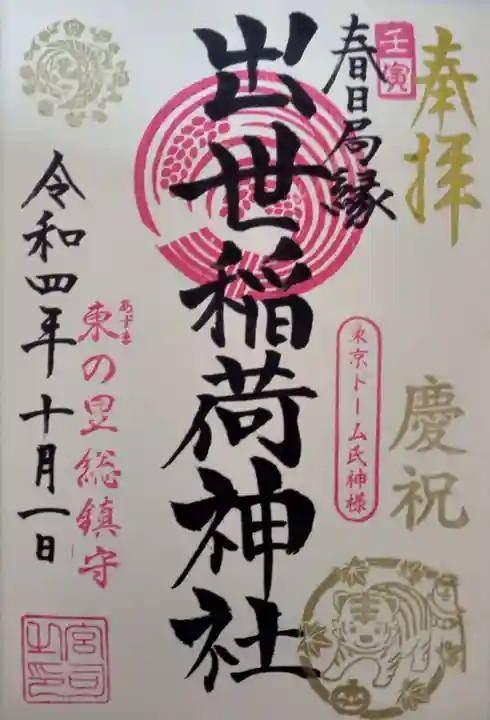 奉拝
慶祝
壬寅
春日局縁
東京ドーム氏神様
出世稲荷神社
あずま
東の宮総鎮守
令和四年十月一日
宮司之印